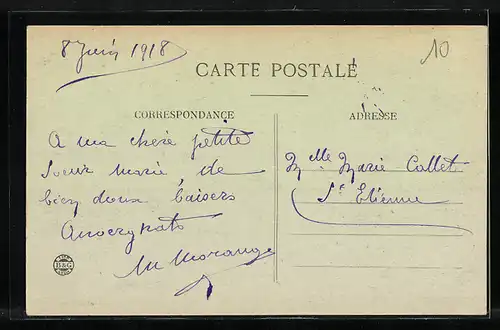 8 Juin 1918
10
CARTE POSTALE
CORRESPONDANCE
ADRESSE
A ma chere petite
Soeur Marie, de
bien doux baisers
M Morange
B&G
Mlle Marie Collet
St Etienne